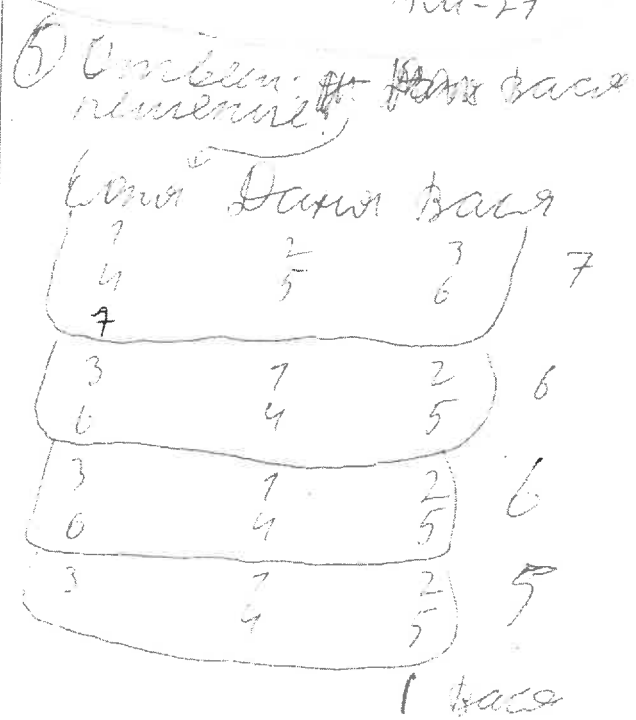 6 Ответ: Вася
решение:
Соня Даня Вася
1 2 3 7
4 5 6
7
3 1 2 6
6 4 5
3 1 2 6
6 4 5
3 1 2 5
4 5
1 Вася